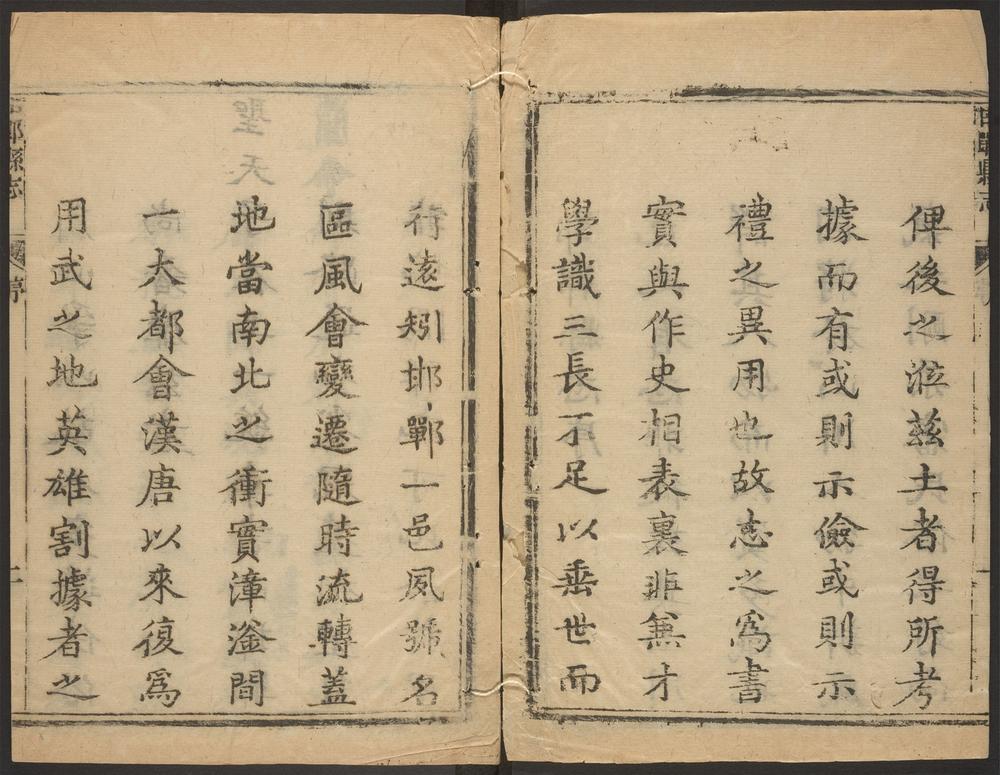 俾後之涖茲土者得所考
據而有或則示儉或則示
禮之異用也故志之為書
實與作史相表裏非無才
學識三長不足以垂世而
行遠矧邯鄲一邑夙號名
區風會變遷隨時流轉蓋
地當南北之衝實漳滏間
一大都會漢唐以來復為
用武之地英雄割據者之
鄲縣志 序 二